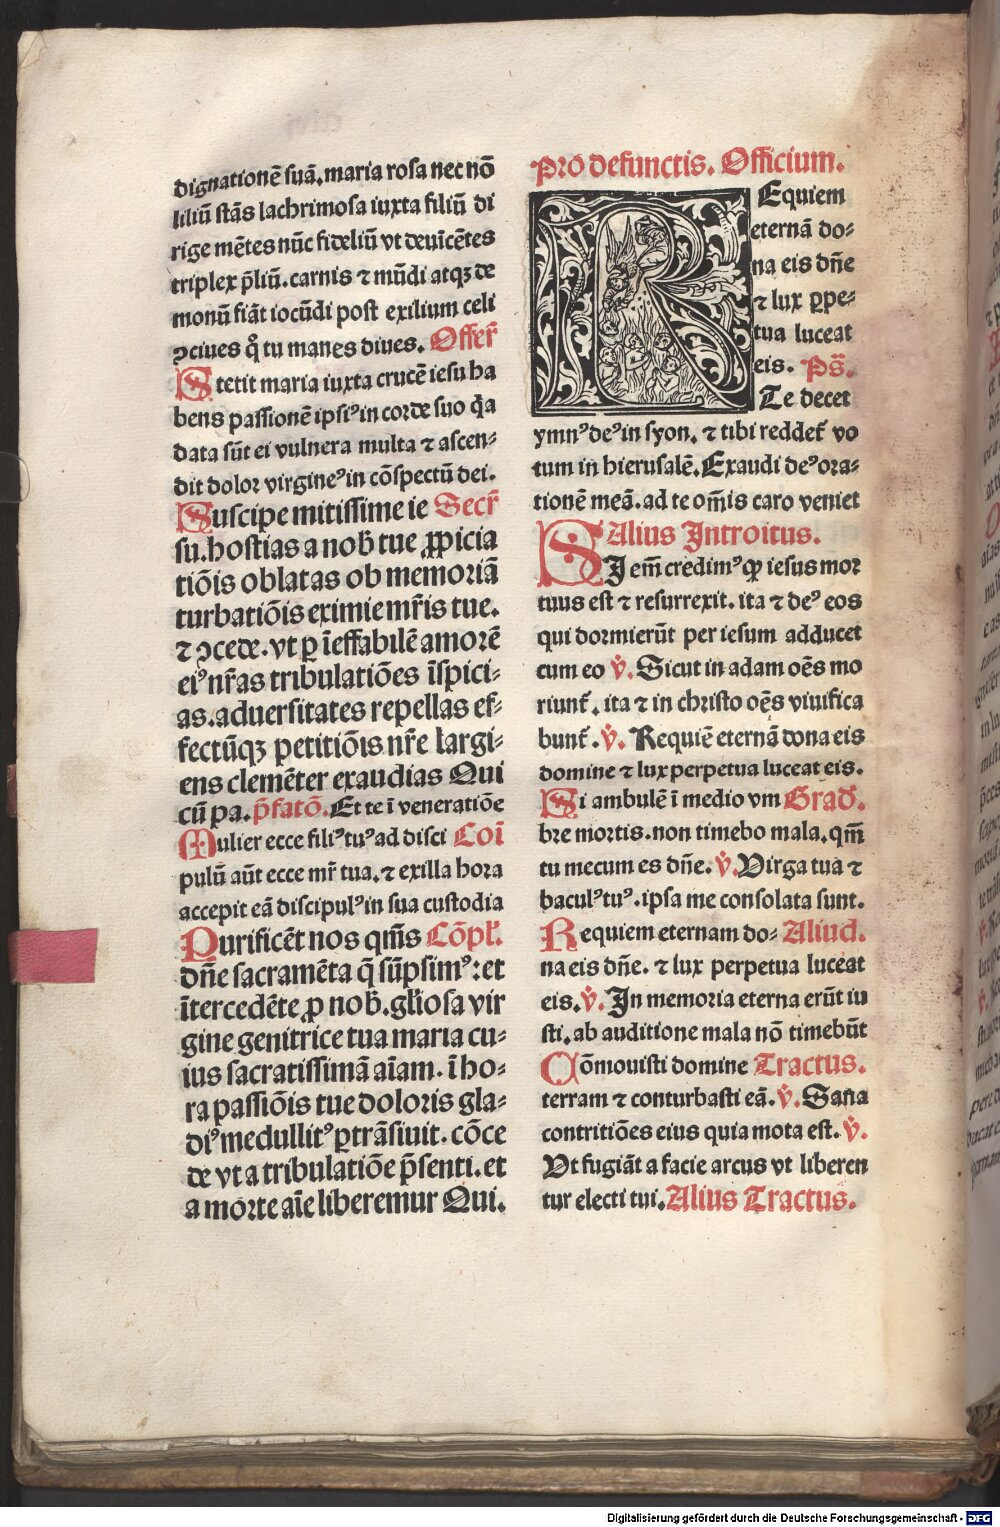 dignationē suā. maria rosa nec nō
liliū stās lachrimosa iuxta filiū di
rige mētes nūc fideliū vt deuīcētes
triplex p̄liū. carnis ⁊ mūdi atqꝫ de
monū fiāt iocūdi post exilium celi
ꝯciues q̊ tu manes diues. Offer̄
Stetit maria iuxta crucē iesu ha
bens passionē ipsiꝰ in corde suo q̄a
data sūt ei vulnera multa ⁊ ascen⸗
dit dolor virgineꝰ in cōspectū dei.
Suscipe mitissime ie Secr̄
su. hostias a nob̄ tue ꝓpicia
tiōis oblatas ob memoriā
turbatiōis eximie mr̄is tue.
⁊ ꝯcede. vt ꝑ īeffabilē amorē
eiꝰ nr̄as tribulatiōes īspici⸗
as. aduersitates repellas ef⸗
fectūqꝫ petitiōis nr̄e largi⸗
ens clemēter exaudias Qui
cū pa. p̄fatō. Et te ī veneratiōe
Mulier ecce filiꝰ tuꝰ ad disci Coī
pulū aūt ecce mr̄ tua. ⁊ exilla hora
accepit eā discipulꝰ in sua custodia
Purificēt nos qm̄s Cōpl̄.
dn̄e sacramēta q̄ sūpsimꝰ: et
ītercedēte ꝓ nob̄. gl̄iosa vir
gine genitrice tua maria cu⸗
ius sacratissimā aīam. ī ho⸗
ra passiōis tue doloris gla⸗
diꝰ medullitꝰ ꝑtrāsiuit. cōce
de vt a tribulatiōe p̄senti. et
a morte aīe liberemur Qui.
Pro defunctis. Officium.
REquiem
eternā do⸗
na eis dn̄e
⁊ lux ꝑpe⸗
tua luceat
eis. Ps̄.
Te decet
ymnꝰ deꝰ in syon. ⁊ tibi reddet᷑ vo
tum in hierusalē. Exaudi deꝰ ora⸗
tionē meā. ad te om̄is caro veniet
Alius Introitus.
SI em̄ credimꝰ ꝙ iesus mor
tuus est ⁊ resurrexit. ita ⁊ deꝰ eos
qui dormierūt per iesum adducet
cum eo v̄. Sicut in adam oēs mo
riunt᷑. ita ⁊ in christo oēs viuifica
bunt᷑. v̄. Requiē eternā dona eis
domine ⁊ lux perpetua luceat eis.
Si ambulē ī medio vm Grad̄.
bre mortis. non timebo mala. qm̄
tu mecum es dn̄e. v̄. Virga tua ⁊
baculꝰ tuꝰ. ipsa me consolata sunt.
Requiem eternam do⸗ Aliud.
na eis dn̄e. ⁊ lux perpetua luceat
eis. v̄. In memoria eterna erūt iu
sti. ab auditione mala nō timebūt
Cōmouisti domine Tractus.
terram ⁊ conturbasti eā. v̄. Sana
contritiōes eius quia mota est. v̄.
Vt fugiāt a facie arcus vt liberen
tur electi tui. Alius Tractus.
Digitalisierung gefördert durch die Deutsche Forschungsgemeinschaft - DFG